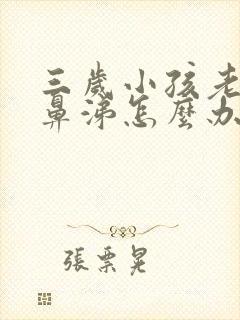 三歲小孩老
鼻涕怎麼办
張票晃